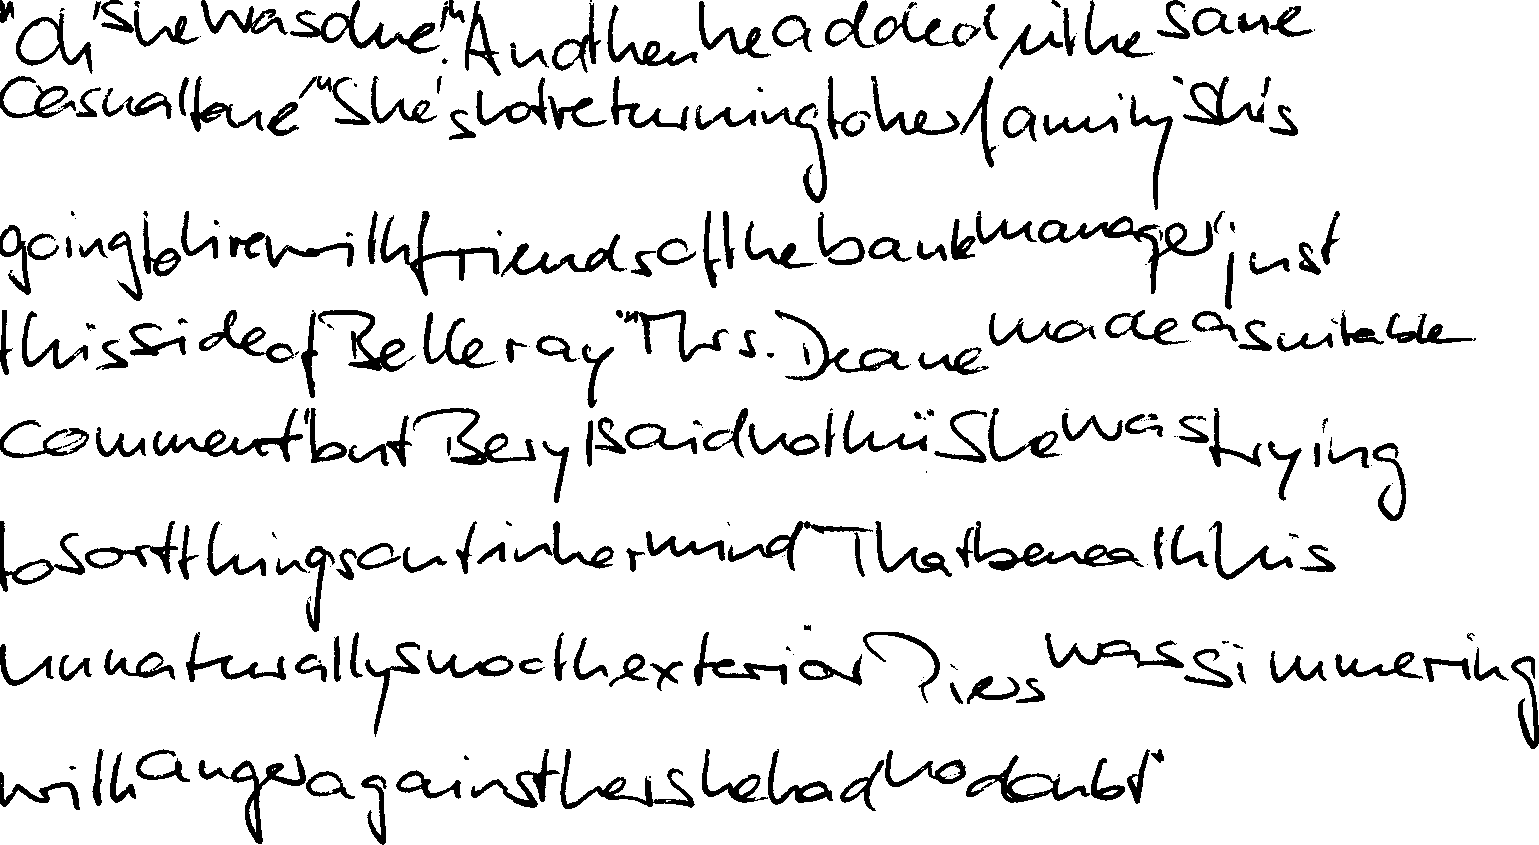 "Oh, she was due." And then he added, in the same
casual tone, "She's not returning to her family. She's
going to live with friends of the bank manager, just
this side of Belleray." Mrs. Deane made a suitable
comment, but Beryl said nothing. She was trying
to sort things out in her mind. That beneath his
unnaturally smooth exterior Piers was simmering
with anger against her she had no doubt.